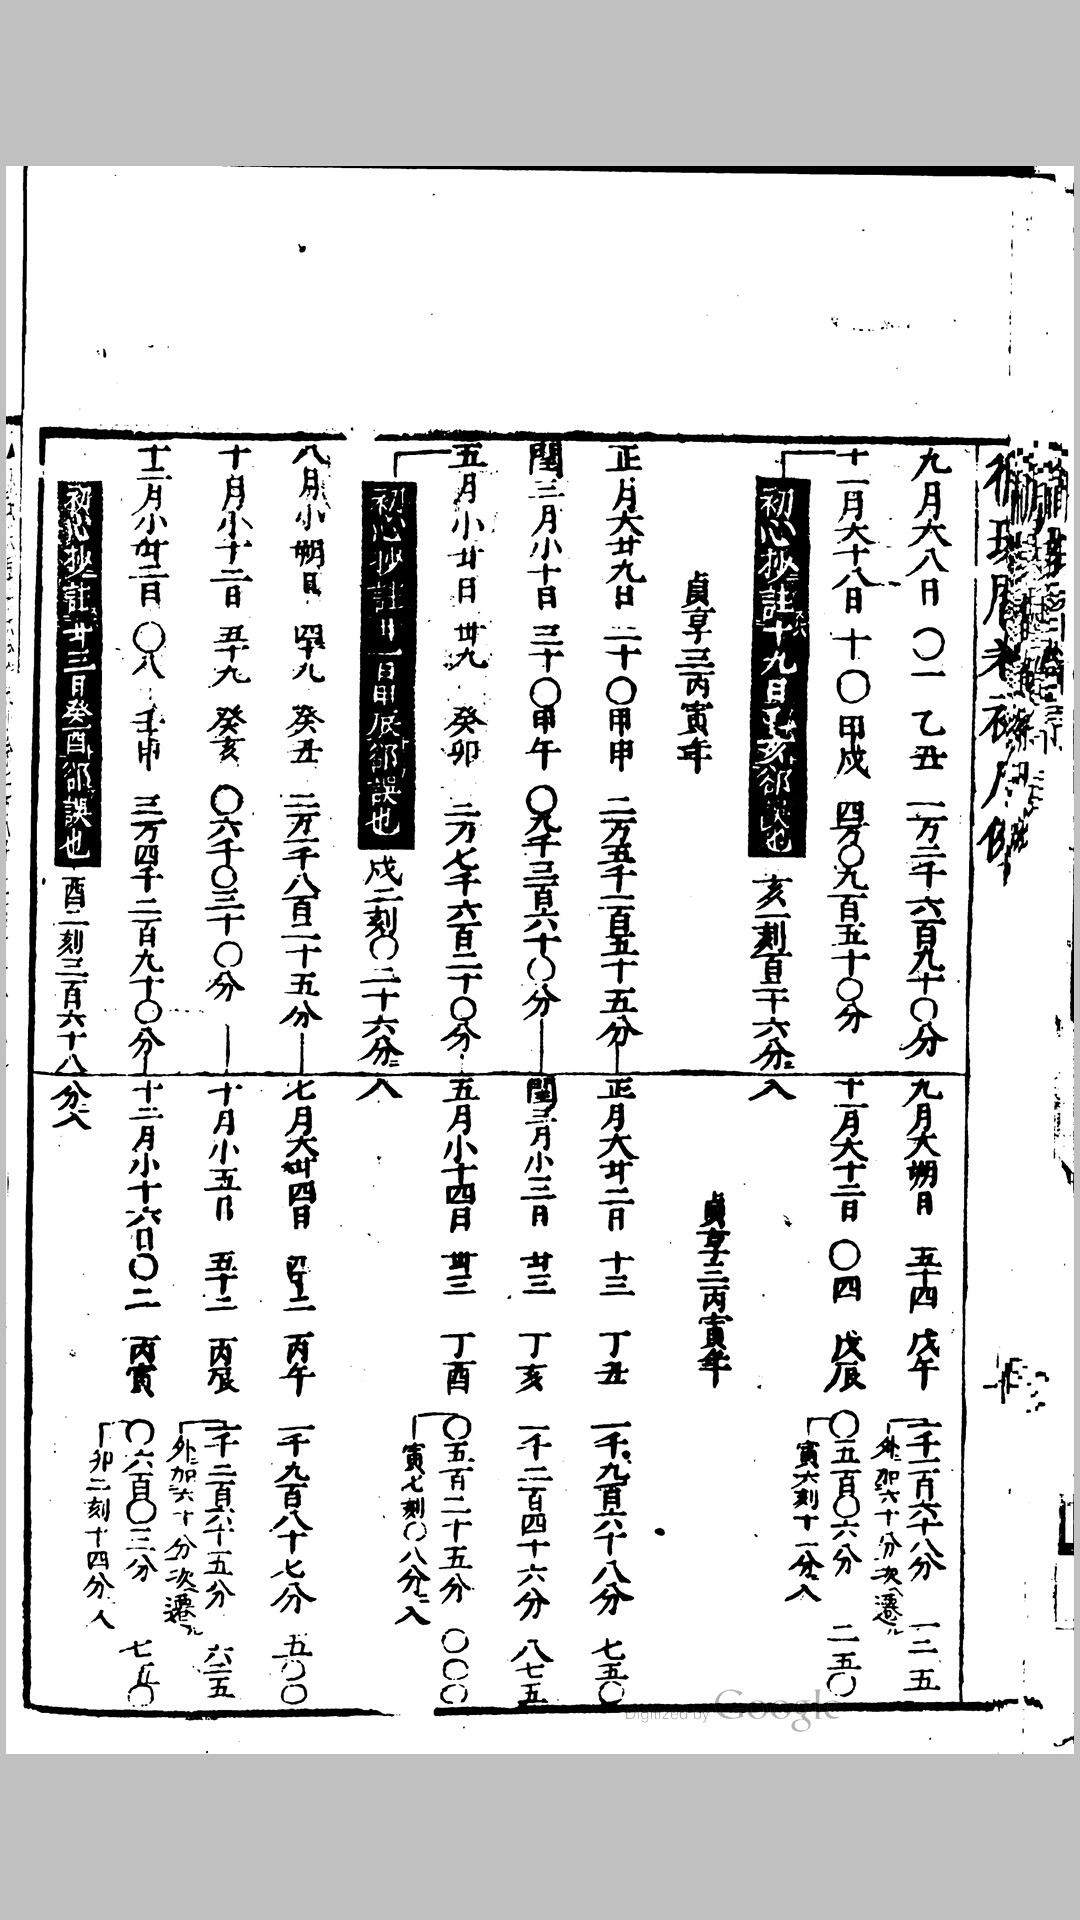 九月大八日 〇一 乙丑 一万二千六百九十〇分
十一月大十八日 十〇 甲戌 四万〇九百五十〇分
初心抄註十九日乙亥郤誤也 亥一刻百二十六分ニ入
貞享三丙寅年
正月大廿九日 二十〇 甲申 二万五千一百五十五分
閏三月小十日 三十〇 甲午 〇九千三百六十〇分
五月小廿日 卅九 癸卯 二万七千六百二十〇分
初心抄註廿一日甲辰郤誤也 戌二刻〇二十六分ニ入
八月小朔日 四十九 癸丑 二万一千八百二十五分
十月小十二日 五十九 癸亥 〇六千〇三十〇分
十二月小廿二日 〇八 壬申 三万四千二百九十〇分
初心抄註廿三日癸酉郤誤也 酉二刻三百六十八分ニ入
九月大朔日 五十四 戊午 一千一百六十八分 一二五
外ニ加六十分次ヘ遷ル
十一月大十二日 〇四 戊辰 〇五百〇六分 二五〇
寅六刻十一分ニ入
貞享三丙寅年
正月大廿二日 十三 丁丑 一千九百六十八分 七五〇
閏三月小三日 廿三 丁亥 一千二百四十六分 八七五
五月小十四日 卅三 丁酉 〇五百二十五分 〇〇〇
寅七刻〇八分ニ入
七月大廿四日 四十二 丙午 一千九百八十七分 五〇〇
十月小五日 五十二 丙辰 一千二百六十五分 六二五
外ニ加六十分次ヘ遷ル
十二月小十六日 〇二 丙寅 〇六百〇三分 七五〇
卯二刻十四分入